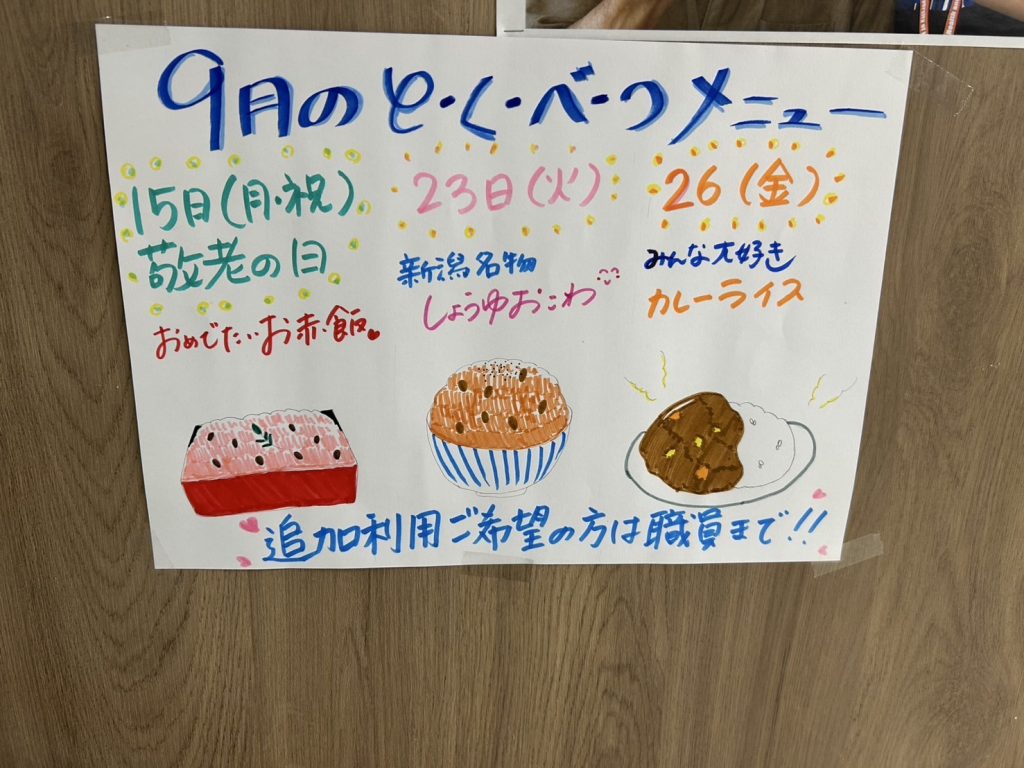 9月のと・く・べ・つメニュー
15日(月・祝)
敬老の日
おめでたいお赤飯
23日(火)
新潟名物
しょうゆおこわ
26(金)
みんな大好き
カレーライス
追加利用ご希望の方は職員まで!!